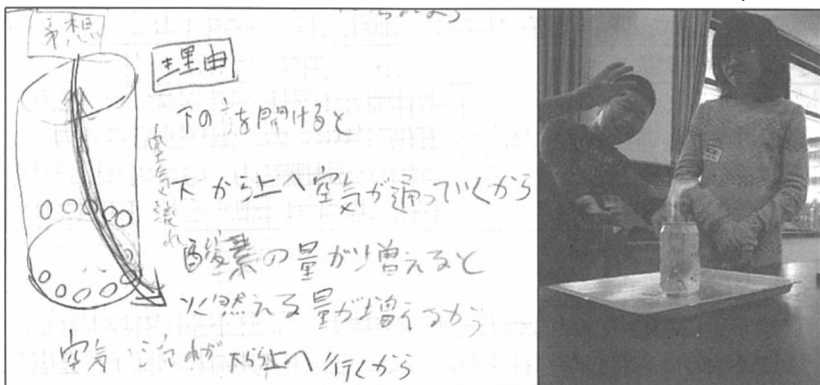 予想
理由
下の 穴を開けると
空気 流れ
下から上へ空気が通っていくから
酸素の量がり増えると
火燃える量が増えるから
空気 流れが 下から上へ 行くから